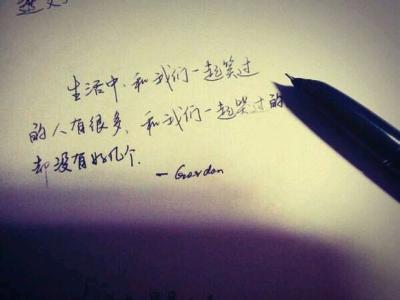 生活中,和我们一起笑过
的人有很多,和我们一起哭过的
却没有好几个.
— Gordon